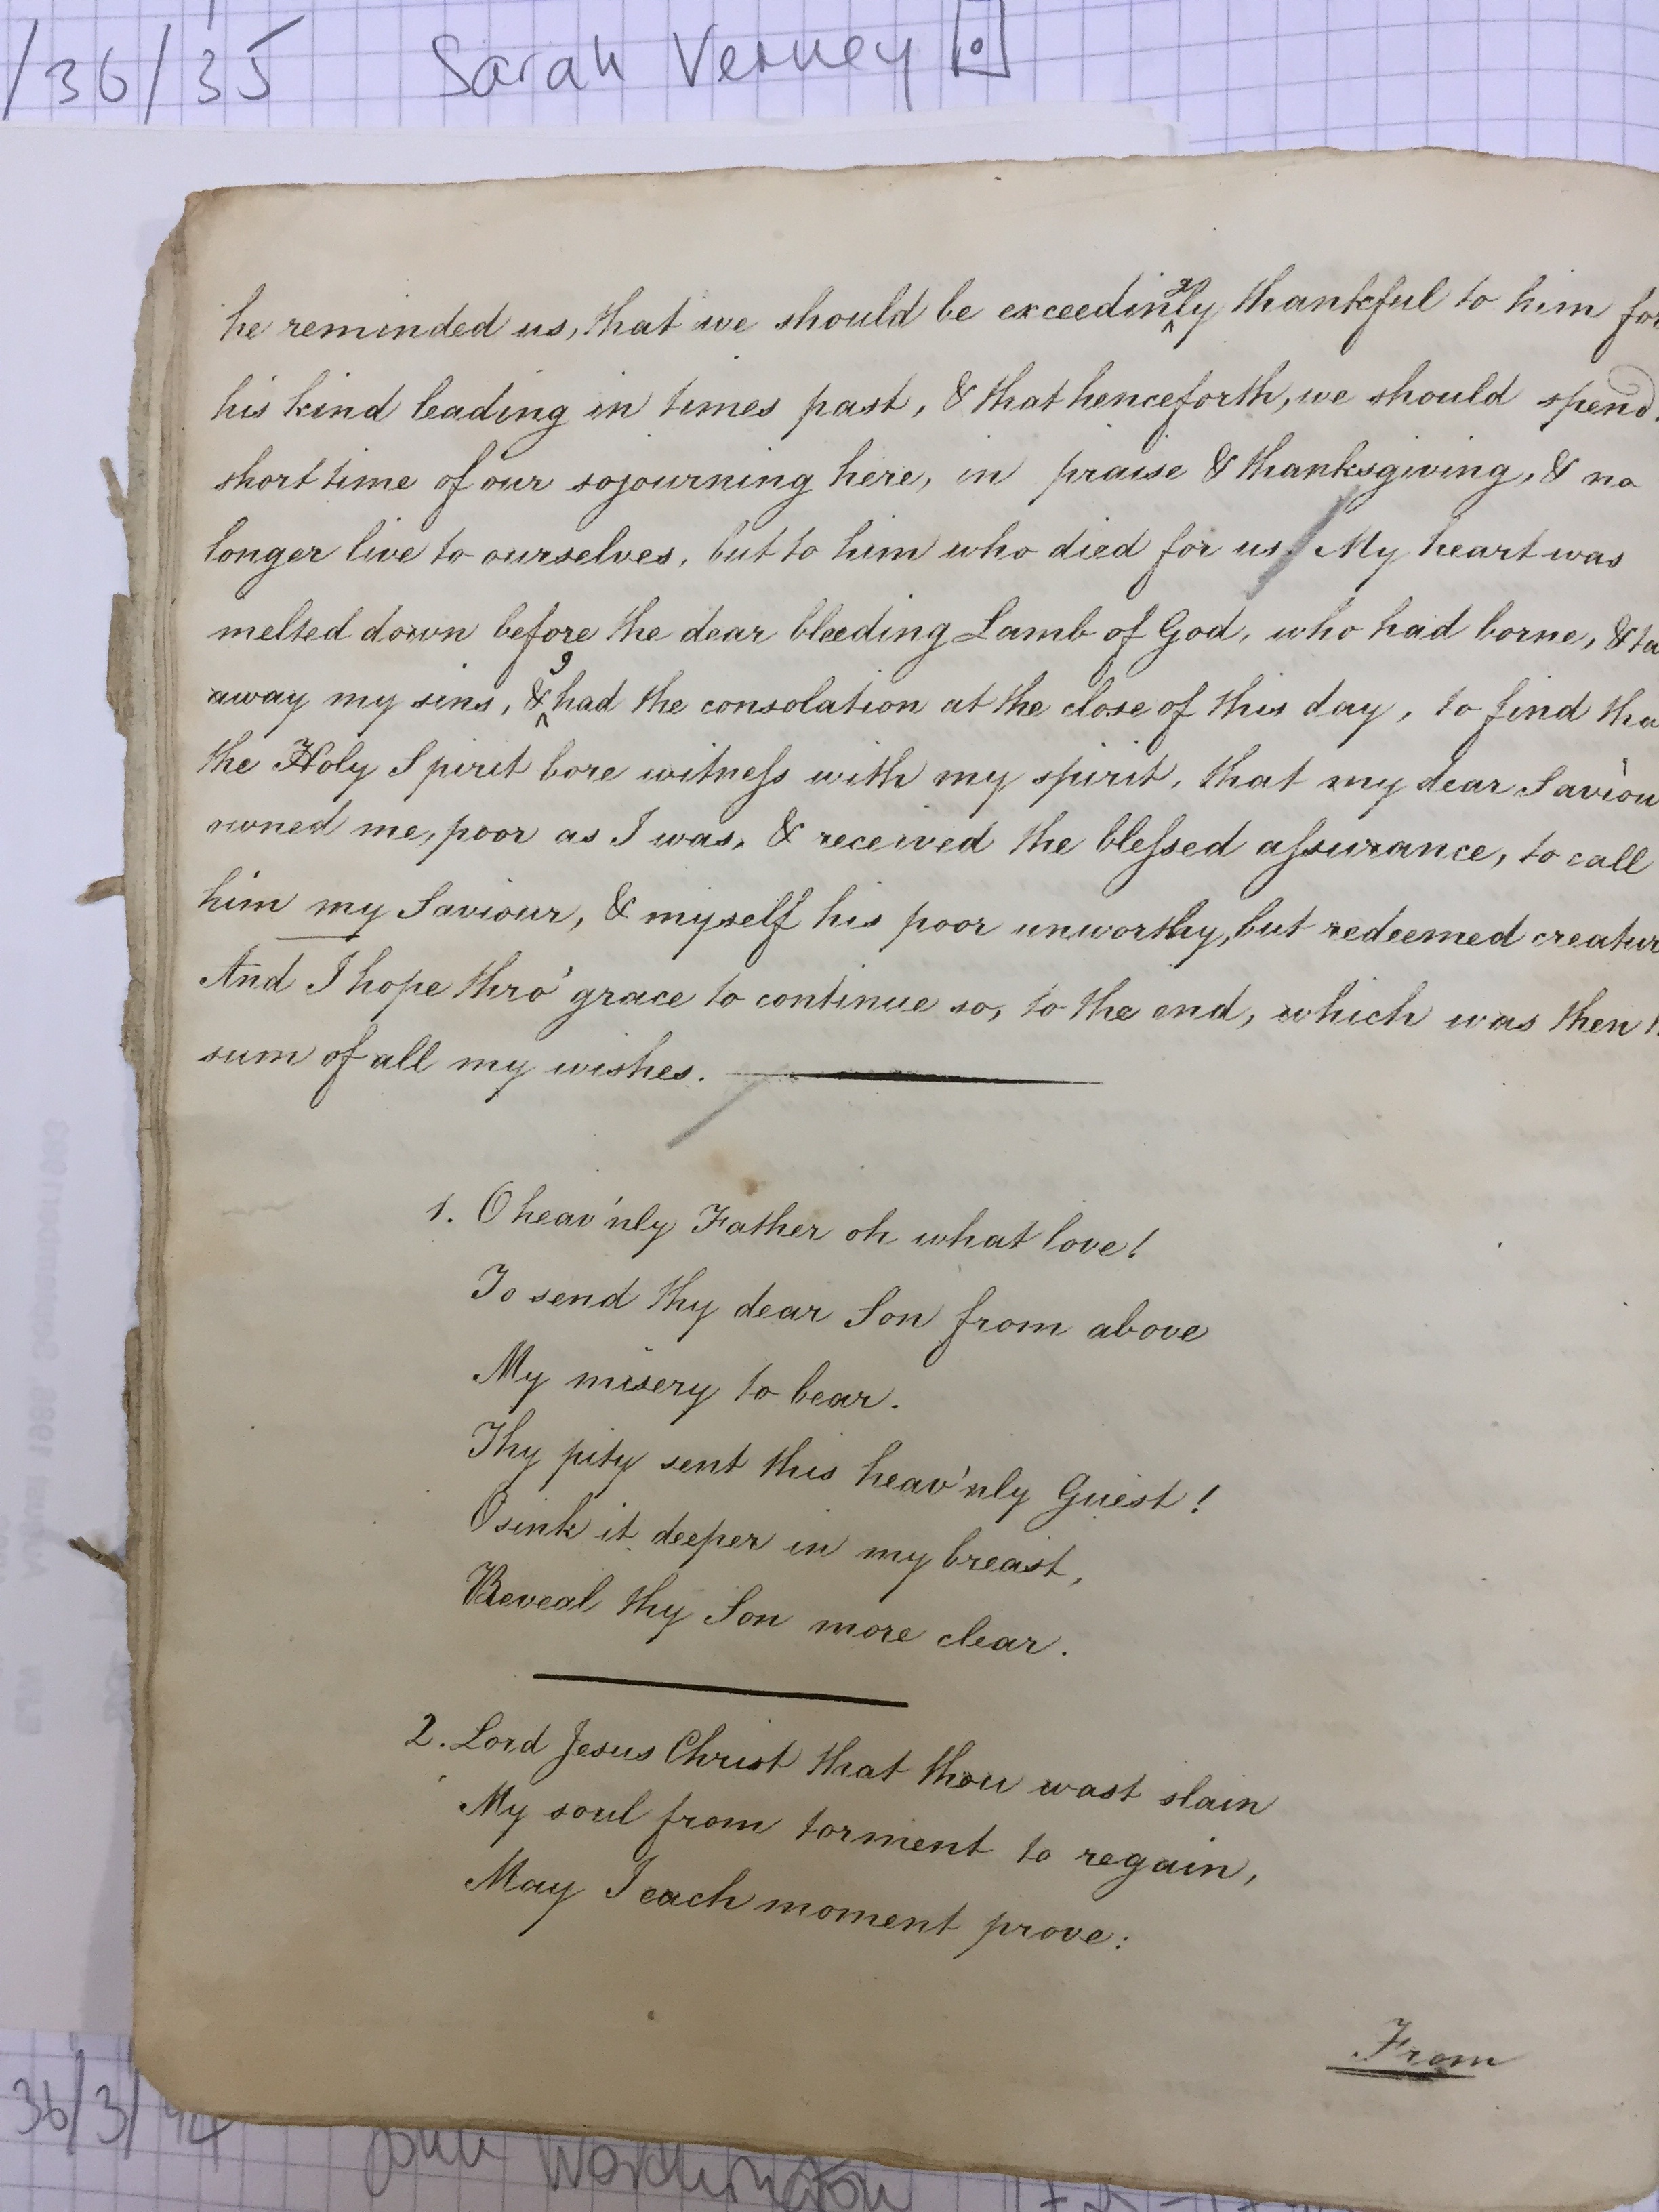 /36/35 Sarah Verney
he reminded us, that we should be exceedingly thankful to him for
his kind leading in times past, & that henceforth, we should spend
short time of our sojourning here, in praise & thanksgiving, & no
longer live to ourselves, but to him who died for us/ My heart was
melted down before the dear bleeding Lamb of God, who had borne, & ta
away my sins, & I had the consolation at the close of this day, to find tha
the Holy Spirit bore witneſs with my spirit, that my dear Saviou
owned me, poor as I was, & received the bleſsed aſsurance, to call
him my Saviour, & myself his poor unworthy, but redeemed creatur
And I hope thro' grace to continue so, to the end, which was then
sum of all my wishes.
1. O heav'nly Father oh what love!
To send thy dear Son from above
My misery to bear.
Thy pity sent this heav'nly Guest!
O sink it deeper in my breast,
Reveal thy Son more clear.
2. Lord Jesus Christ that thou wast slain
My soul from torment to regain,
May I each moment prove:
From
36/3/94 John Worthington